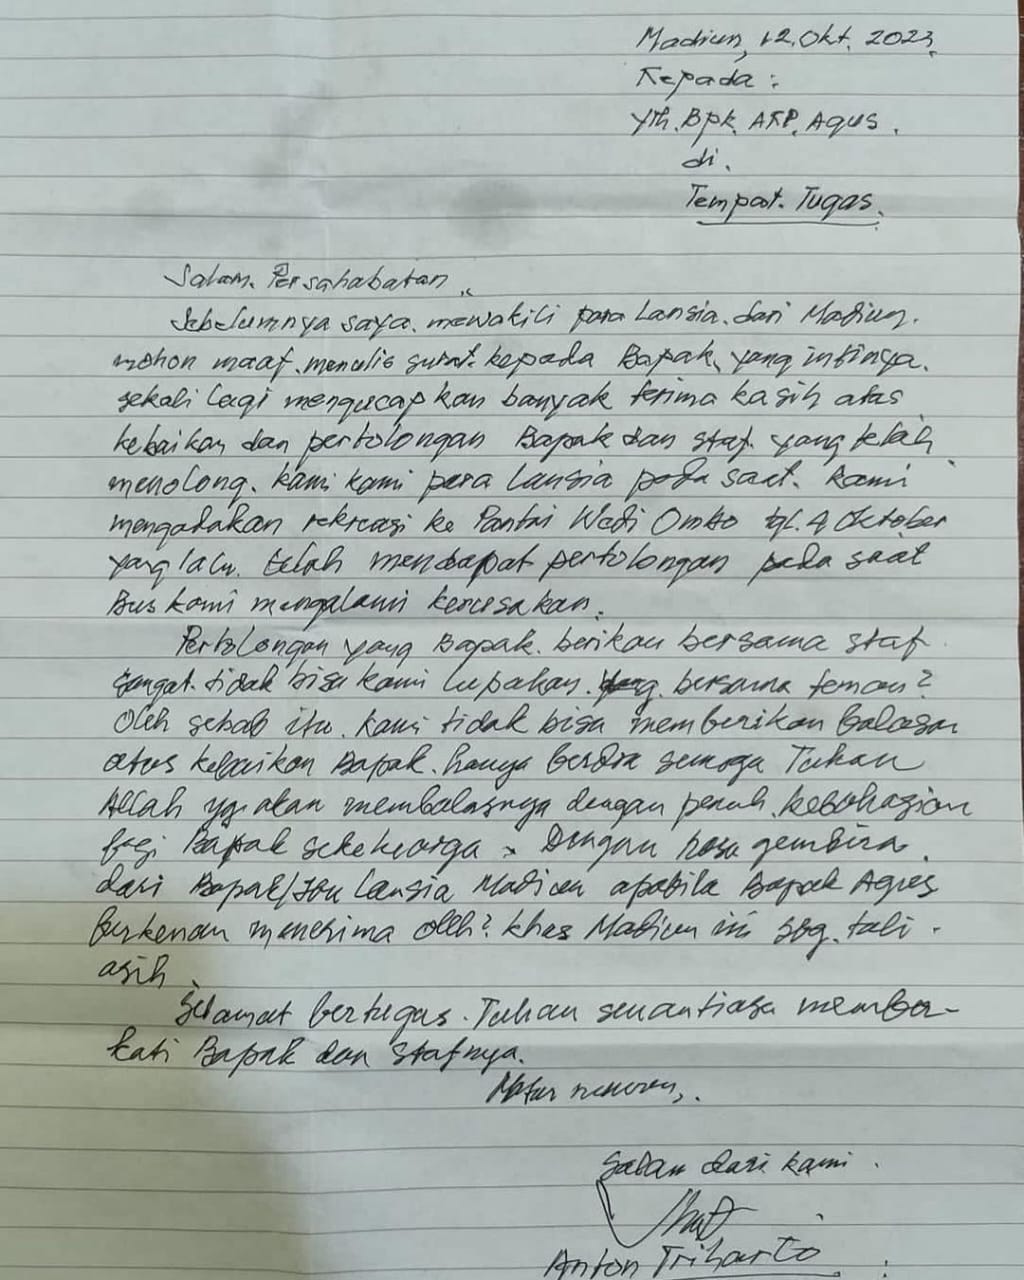 Madiun, 12. Okt. 2023.
Kepada :
Yth. Bpk. AKP. Agus.
di.
Tempat. Tugas.
Salam. Persahabatan,,
Sebelumnya saya. mewakili para Lansia. dari Madiun.
mohon maaf. menulis surat. kepada Bapak, yang intinya.
sekali lagi mengucapkan banyak terima kasih atas
kebaikan dan pertolongan Bapak dan staf. yang telah
menolong. kami kami para lansia pada saat. kami
mengadakan rekreasi ke Pantai Wedi Ombo tgl. 4 Oktober
yang lalu. telah mendapat pertolongan pada saat
Bus kami mengalami kerusakan.
Pertolongan yang Bapak. berikan bersama staf.
sangat. tidak bisa kami lupakan. bersama teman?
Oleh sebab itu. kami tidak bisa memberikan balasan
atas kebaikan Bapak. hanya berdoa semoga Tuhan
Allah yg. akan membalasnya dengan penuh. kebahagian
bagi Bapak sekeluarga. Dengan rasa gembira.
dari Bapak/Ibu Lansia Madiun apabila Bapak Agus
berkenan menerima oleh? khas Madiun ini sbg. tali.
asih.
Selamat bertugas. Tuhan senantiasa member-
kati Bapak dan Stafnya.
Matur nuwun,.
Salam dari kami.
Anton Triharto